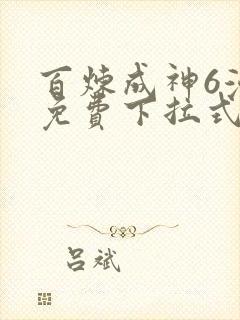 百炼成神6
免費下拉式
吕斌